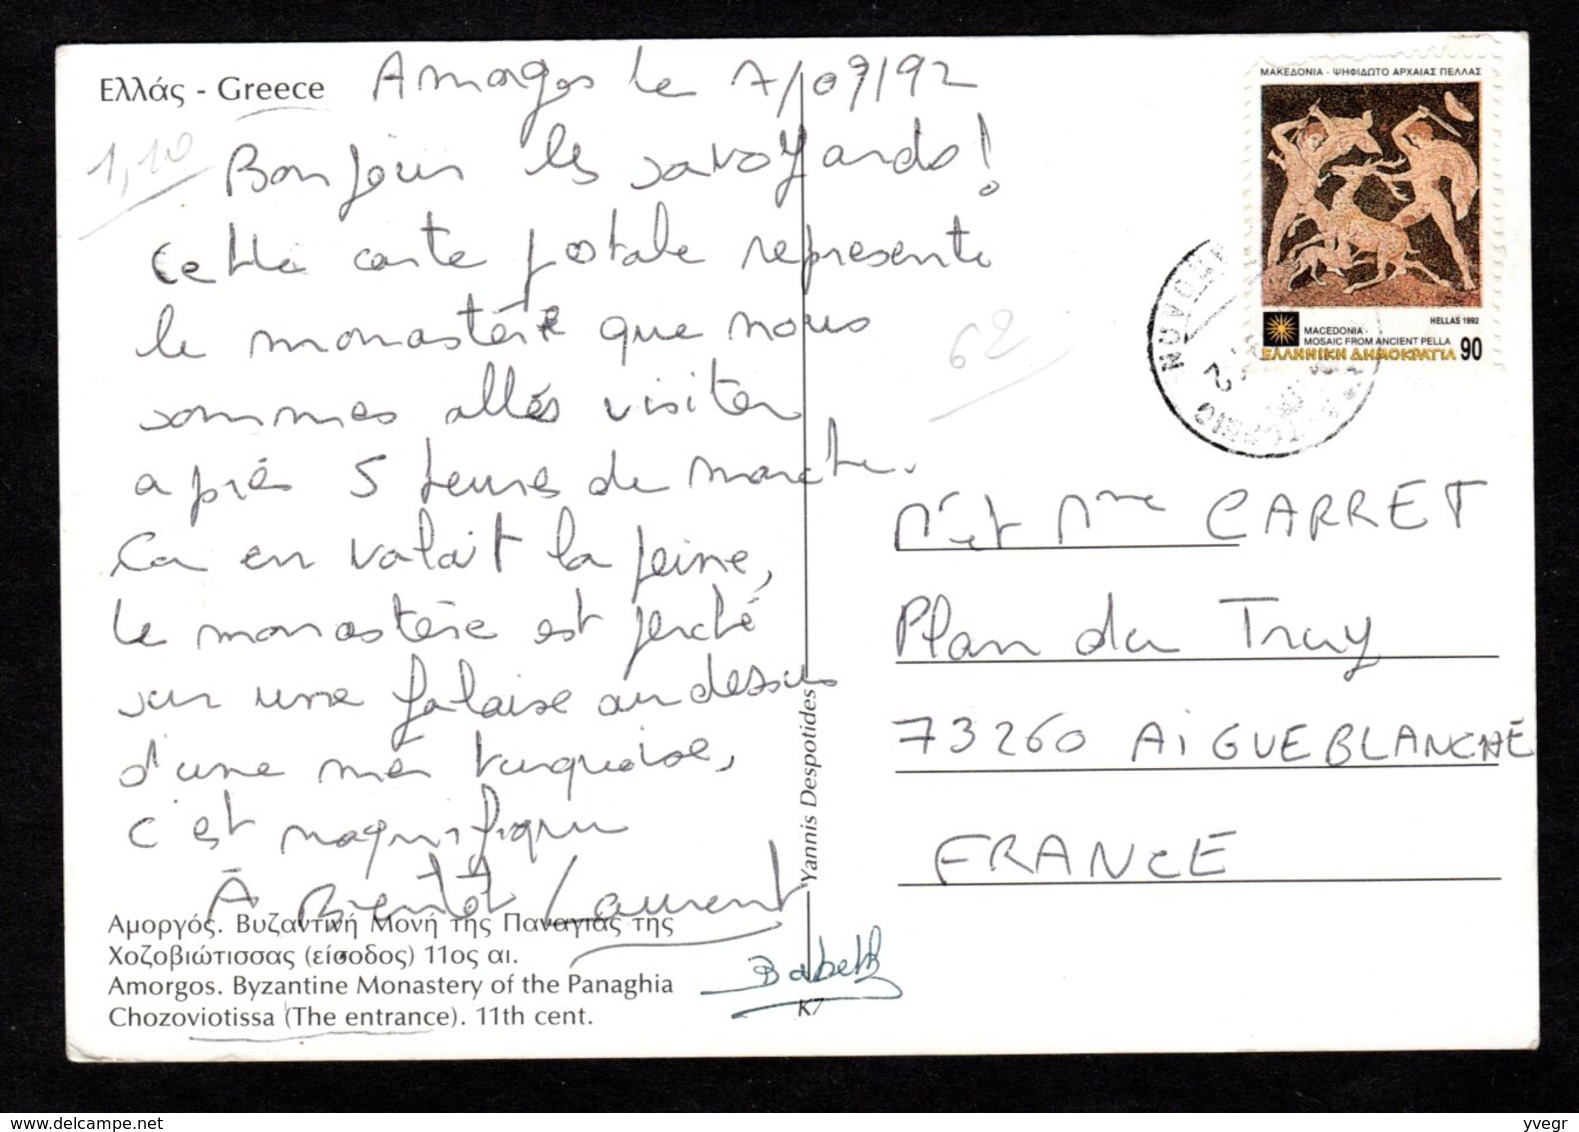 Ελλάς - Greece
Amorgos le 7/09/92
1,10
Bonjour les savoyards!
Cette carte postale represente
le monastère que nous
sommes allés visiter
après 5 heures de marche.
Ca en valait la peine,
le monastère est perché
sur une falaise au dessus
d'une mer turquoise,
c'est magnifique
À Bientôt Laurent
Babeth
Αμοργός. Βυζαντινή Μονή της Παναγίας της
Χοζοβιώτισσας (είσοδος) 11ος αι.
Amorgos. Byzantine Monastery of the Panaghia
Chozoviotissa (The entrance). 11th cent.
Yannis Despotides
K7
62
ΜΑΚΕΔΟΝΙΑ - ΨΗΦΙΔΩΤΟ ΑΡΧΑΙΑΣ ΠΕΛΛΑΣ
HELLAS 1992
MACEDONIA -
MOSAIC FROM ANCIENT PELLA
ΕΛΛΗΝΙΚΗ ΔΗΜΟΚΡΑΤΙΑ 90
Mr et Mme CARRET
Plan du Truy
73260 AiGUEBLANCHE
FRANCE
yvegr